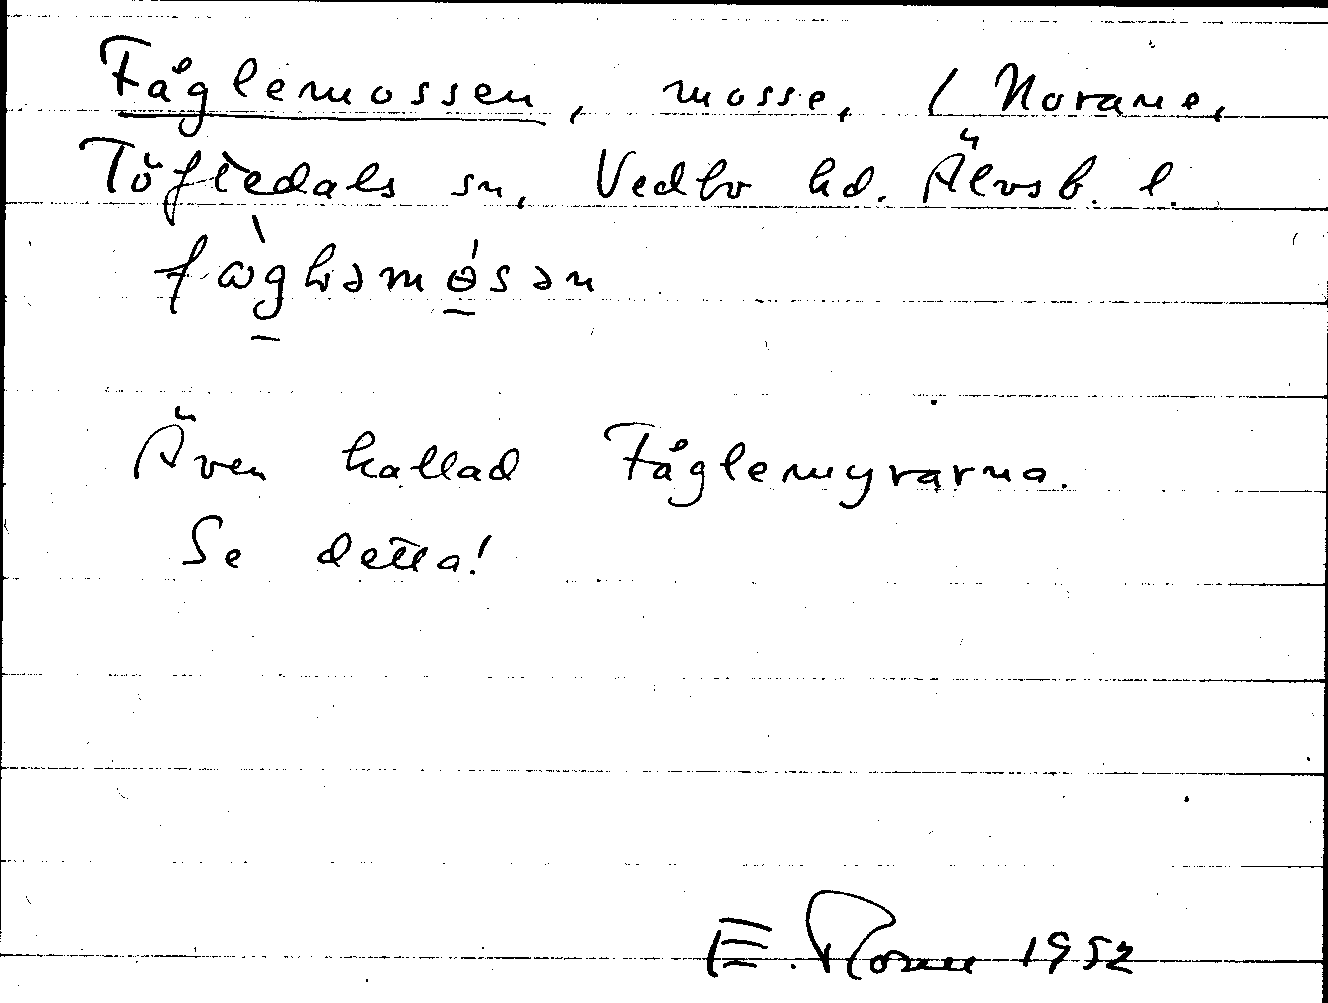 Fåglemossen, mosse, / Norane,
Töftedals sn, Vedbo hd. Älvsb. l.
Även kallad Fåglemyrarna.
Se detta!
E. Rosell 1952